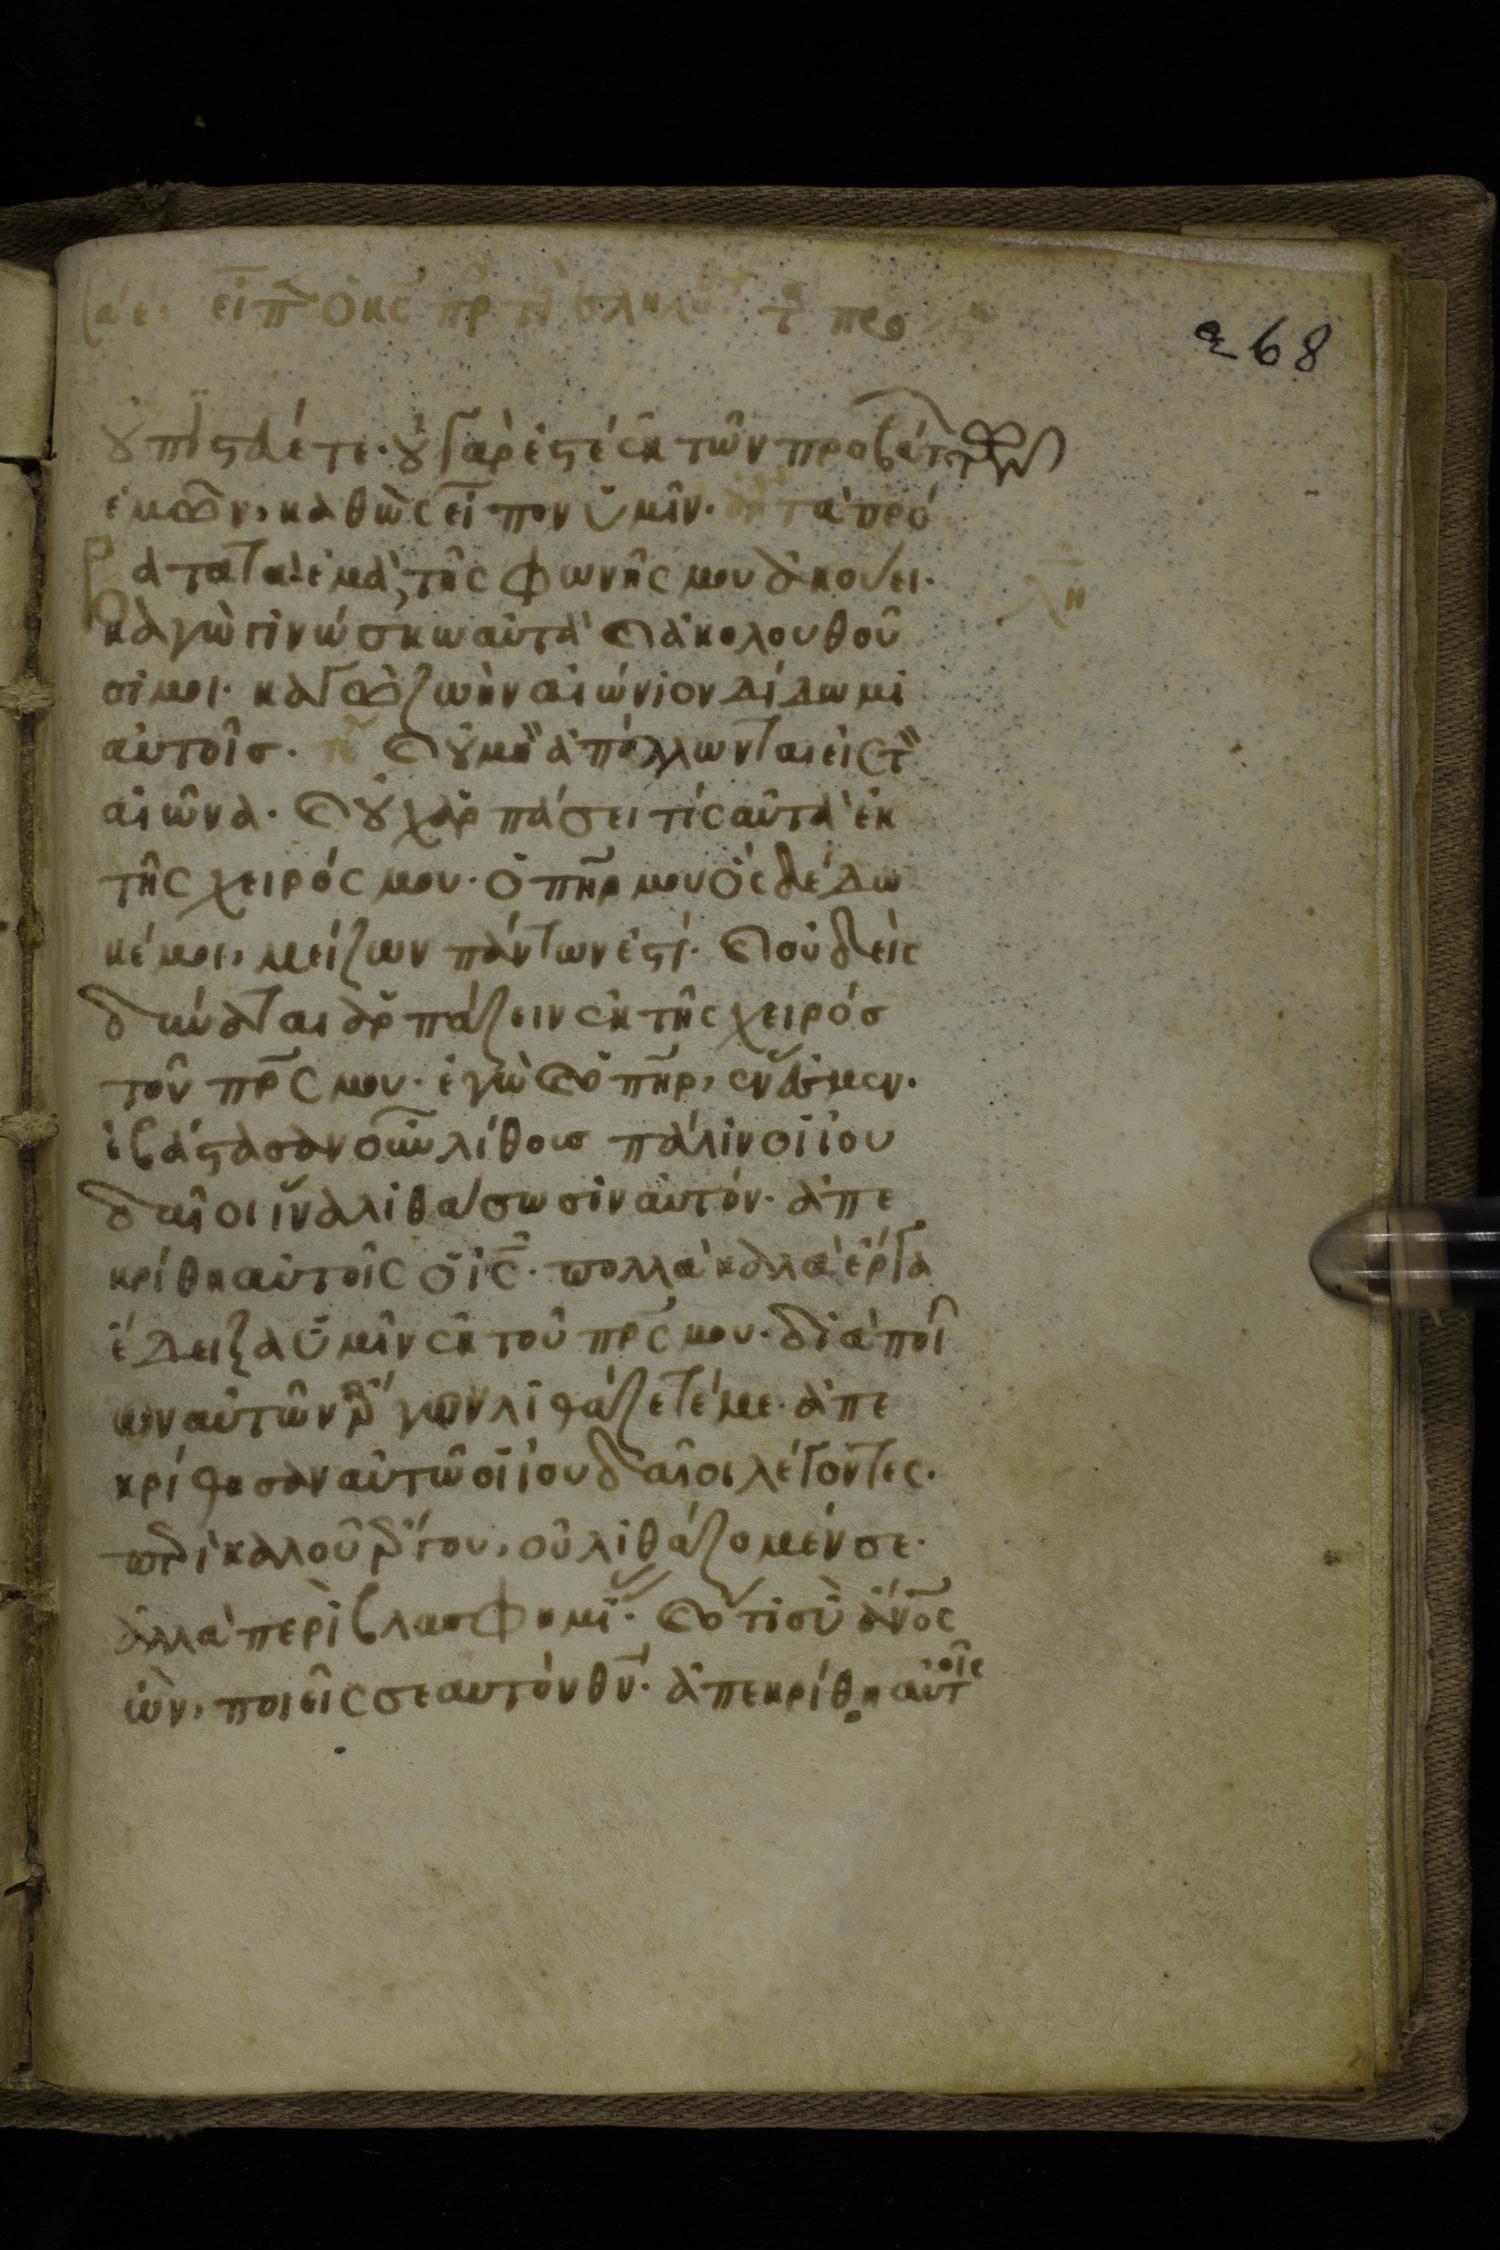 εἶπεν ὁ κς πρ
268
οὐ πιστεύετε· οὐ γάρ ἐστὲ ἐκ τῶν προβάτων τῶν
ἐμῶν, καθὼς εἶπον ὑμῖν. τὰ πρό
βατα τὰ ἐμὰ, τῆς φωνῆς μου ἀκούει·
λη
κἀγὼ γινώσκω αὐτὰ καὶ ἀκολουθοῦ
σί μοι· κἀγὼ ζωὴν αἰώνιον δίδωμι
αὐτοῖσ· τε καὶ οὐ μὴ ἀπόλλωνται εἰς τὸν
αἰῶνα· καὶ οὐχ ἁρπάσει τίς αὐτὰ ἐκ
τῆς χειρός μου· ὁ πηρ μου ὃς δέδω
κέ μοι, μείζων πάντων ἐστί· καὶ οὐδεὶς
δύναται ἁρπάζειν ἐκ τῆς χειρόσ
τοῦ πρς μου· ἐγὼ καὶ ὁ πηρ, ἕν ἐσμεν.
ἐβάστασαν οὖν λίθουσ πάλιν οἱ ἰου
δαῖοι ἵνα λιθάσωσιν αὐτόν· ἀπε
κρίθη αὐτοῖς ὁ ις· πολλὰ καλὰ ἔργα
ἔδειξα ὑμῖν ἐκ τοῦ πρς μου· διὰ ποῖ
ον αὐτῶν ἔργων λιθάζετέ με· ἀπε
κρίθησαν αὐτῶ οἱ ἰουδαῖοι λέγοντες·
περὶ καλοῦ ἔργου, οὐ λιθάζομέν σε·
ἀλλὰ περὶ βλασφημίας· καὶ ὅτι σὺ ἄνος
ὢν, ποιεῖς σεαυτὸν θν· ἀπεκρίθη αὐτοῖς